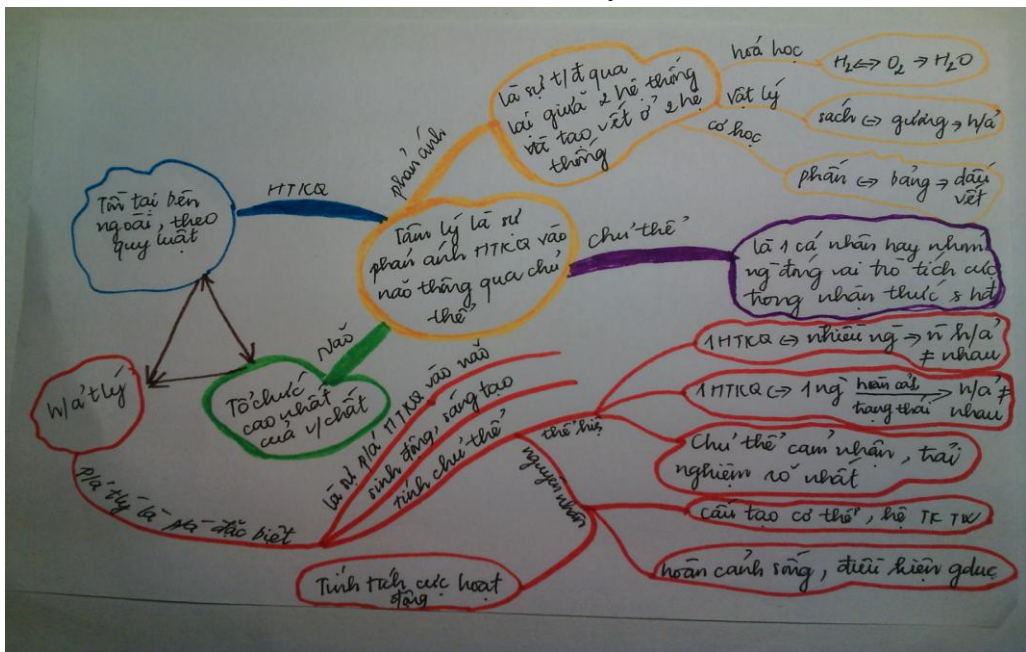 Tâm lý là sự
phản ánh HTKQ vào
não thông qua chủ
thể
HTKQ
Tồn tại bên
ngoài, theo
quy luật
phản ánh
là sự t/đ qua
lại giữa 2 hệ thống
và tạo vết ở 2 hệ
thống
hoá học
H₂ ⇔ O₂ → H₂O
vật lý
sách ⇔ gương → h/ả
cơ học
phấn ⇔ bảng → dấu
vết
chủ thể
là 1 cá nhân hay nhóm
ng đóng vai trò tích cực
trong nhận thức & hđ
não
Tổ chức
cao nhất
của v/chất
h/ả tlý
p/á tlý là pá đặc biệt
là sự p/á HTKQ vào não
sinh động, sáng tạo
tính chủ thể
thể hiện
1 HTKQ ⇔ nhiều ng → n h/ả
≠ nhau
1 HTKQ ⇔ 1 ng hoàn cảnh → h/ả ≠
trạng thái nhau
Chủ thể cảm nhận, trải
nghiệm rõ nhất
nguyên nhân
cấu tạo cơ thể, hệ TK TW
hoàn cảnh sống, điều kiện gdục
Tính tích cực hoạt
động